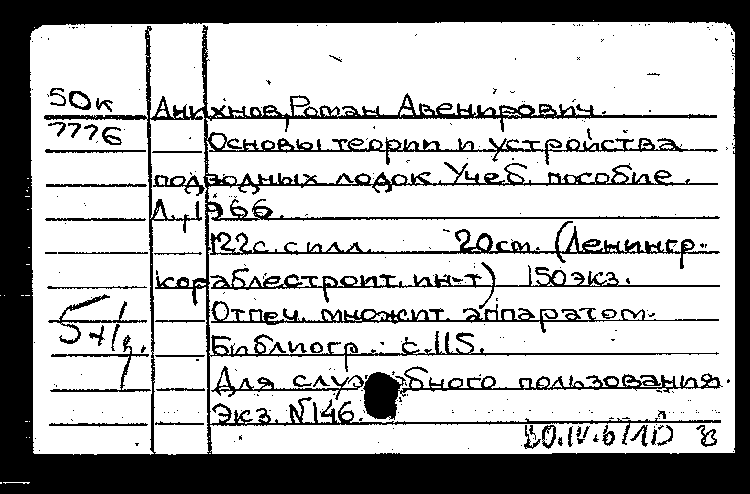 50к Анихнов, Роман Авенирович.
7776 Основы теории и устройства
подводных лодок. Учеб. пособие.
Л., 1966.
122с. с илл. 20см. (Ленингр.
кораблестроит. ин-т) 150 экз.
Отпеч. множит. аппаратом.
Библиогр.: с.115.
Для служебного пользования.
Экз. №146.